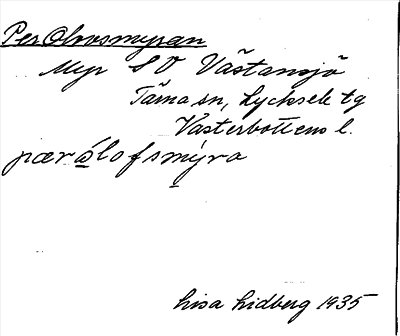 Per Olovsmyran
Myr S O Västansjö
Tärna sn, Lycksele tg
Västerbottens l.
pærålofsmýra
Lisa Lidberg 1935